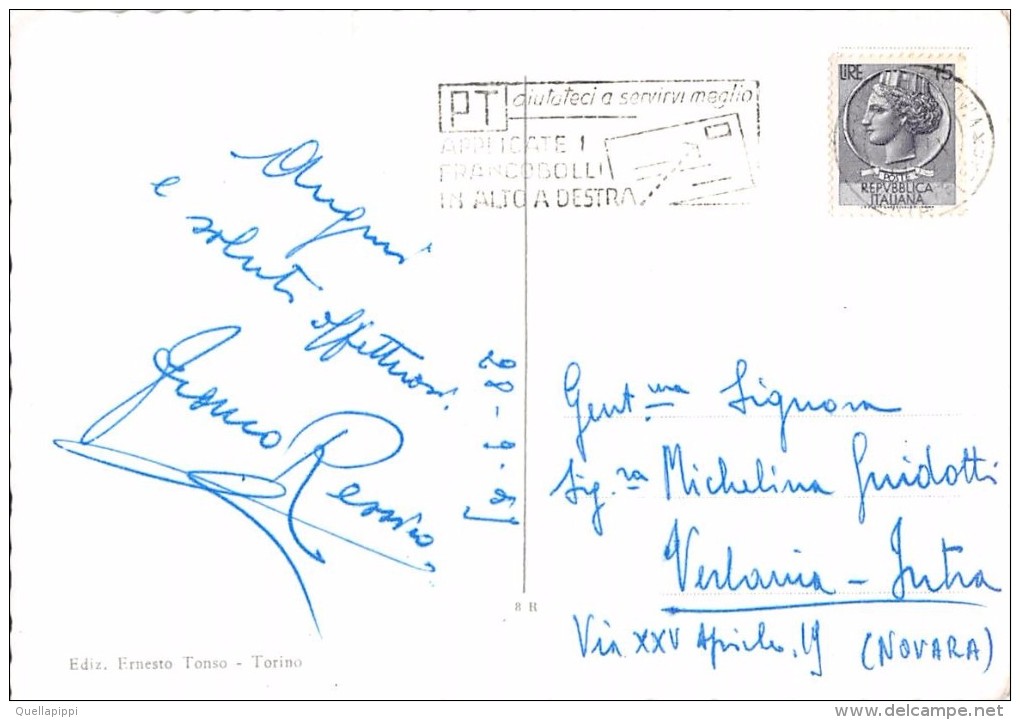 PT aiutateci a servirvi meglio
APPLICATE I
FRANCOBOLLI
IN ALTO A DESTRA
LIRE 15
POSTE
REPVBBLICA
ITALIANA
Auguri
e saluti affettuosi.
Franco
Gent.ma Signora
Sig.ra Michelina Guidotti
Verbania - Intra
Via XXV Aprile, 19 (NOVARA)
8 R
Ediz. Ernesto Tonso - Torino
Quellapippi